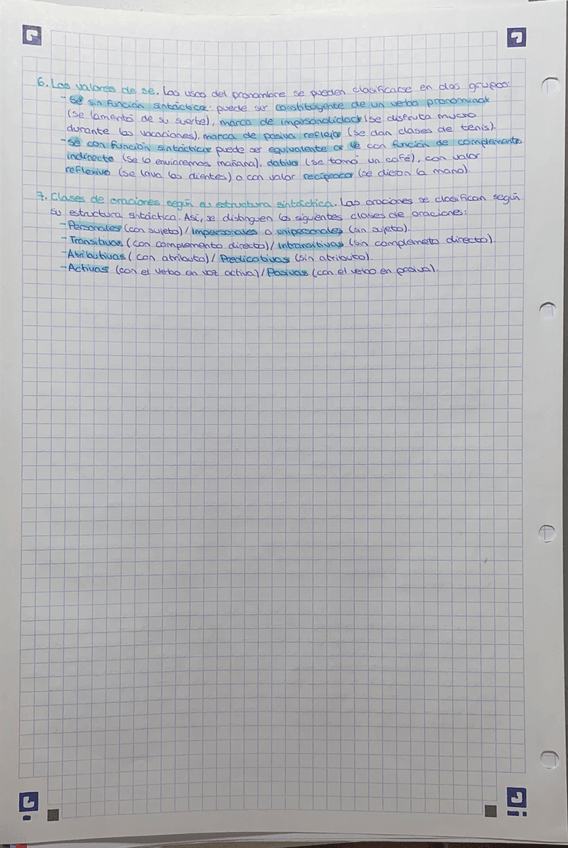 6. Los valores de se. Los usos del pronombre se pueden clasificarse en dos grupos:
- Se sin función sintáctica: puede ser constituyente de un verbo pronominal
(se lamentó de su suerte), marca de impersonalidad (se disfruta mucho
durante las vacaciones), marca de pasiva refleja (se dan clases de tenis).
- Se con función sintáctica: puede ser equivalente a le con función de complemento
indirecto (se lo enviaremos mañana), dativo (se tomó un café), con valor
reflexivo (se lava los dientes) o con valor recíproco (se dieron la mano).
7. Clases de oraciones según su estructura sintáctica. Las oraciones se clasifican según
su estructura sintáctica. Así, se distinguen las siguientes clases de oraciones:
- Personales (con sujeto) / Impersonales o unipersonales (sin sujeto).
- Transitivas (con complemento directo) / Intransitivas (sin complemento directo).
- Atributivas (con atributo) / Predicativas (sin atributo).
- Activas (con el verbo en voz activa) / Pasivas (con el verbo en pasiva).